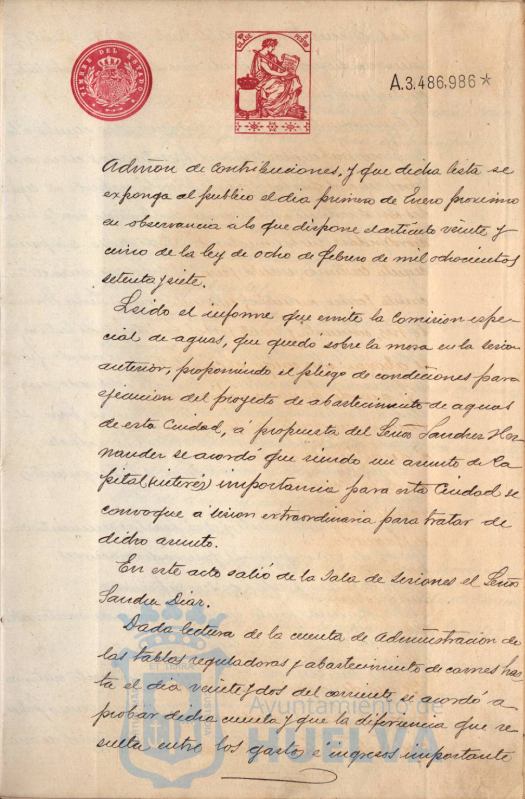 TIMBRE DEL ESTADO
CLASE
A.3.486,986 *
Admon de contribuciones, y que dicha lista se
exponga al publico el dia primero de Enero proximo
en observancia a lo que dispone el articulo veinte y
cinco de la ley de ocho de febrero de mil ochocientos
setenta y siete.
Leido el informe que emite la Comision espe-
cial de aguas, que quedó sobre la mesa en la sesion
anterior, proponiendo el pliego de condiciones para
ejecucion del proyecto de abastecimiento de aguas
de esta Ciudad, á propuesta del Señor Sanchez Her
nandez se acordó que siendo un asunto de ca
pital (interés) importancia para esta Ciudad se
convoque a sesion extraordinaria para tratar de
dicho asunto.
En este acto salió de la Sala de Sesiones el Señor
Sanchez Diaz.
Dada lectura de la cuenta de Administracion de
las tablas reguladoras y abastecimiento de carnes has
ta el dia veinte y dos del corriente se acordó a
probar dicha cuenta y que la diferencia que re
sulta entre los gastos é ingresos importante
Ayuntamiento de
HUELVA